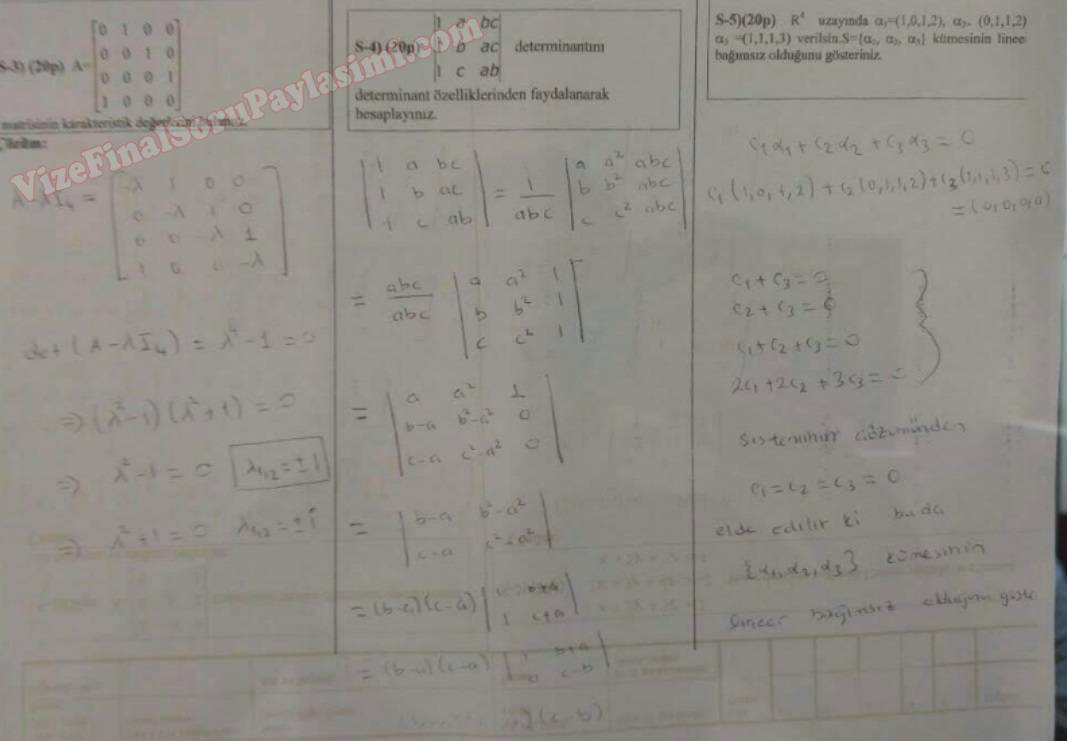 S-3) (20p) A=
0 1 0 0
0 0 1 0
0 0 0 1
1 0 0 0
matrisinin karakteristik
VizeFinalSoruPaylasimi.com
A-λI₄ =
-λ 1 0 0
0 -λ 1 0
0 0 -λ 1
1 0 0 -λ
det(A-λI₄) = λ⁴-1=0
⇒(λ²-1)(λ²+1)=0
⇒ λ²-1=0 λ₁,₂=±1
⇒ λ²+1=0 λ₁,₂=±i
S-4) (20p)
1 a bc
b ac determinantını
1 c ab
determinant özelliklerinden faydalanarak
hesaplayınız.
|1 a bc| |a a² abc|
|1 b ac| = 1/abc |b b² abc|
|1 c ab| |c c² abc|
= abc/abc |a a² 1|
|b b² 1|
|c c² 1|
= |a a² 1|
|b-a b²-a² 0|
|c-a c²-a² 0|
= |b-a b²-a²|
|c-a c²-a²|
=(b-a)(c-a) |1 b+a|
|1 c+a|
=(b-a)(c-a) |1 b+a|
|0 c-b|
(c-b)
S-5)(20p) R⁴ uzayında α₁=(1,0,1,2), α₂= (0,1,1,2)
α₃ =(1,1,1,3) verilsin.S={α₁, α₂, α₃} kümesinin linee
bağımsız olduğunu gösteriniz.
c₁α₁+c₂α₂+c₃α₃=0
c₁(1,0,1,2)+c₂(0,1,1,2)+c₃(1,1,1,3)=0
=(0,0,0,0)
c₁+c₃=0
c₂+c₃=0
c₁+c₂+c₃=0
2c₁+2c₂+3c₃=0
sisteminin çözümünden
c₁=c₂=c₃=0
elde edilir ki bu da
{α₁,α₂,α₃} kümesinin
lineer bağımsız olduğunu göste